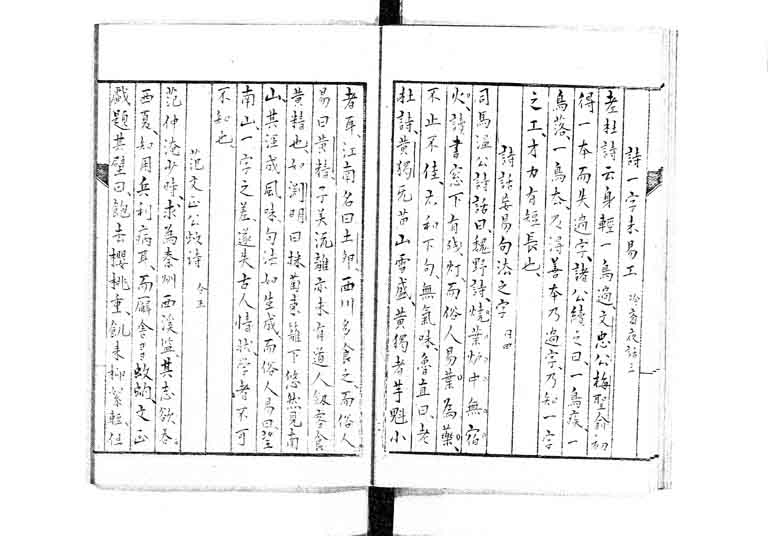 詩一字未易工 冷齋夜話三
老杜詩云身輕一鳥過文忠公梅聖俞初
得一本而失過字諸公續之曰一鳥疾一
鳥落一鳥去乃得善本乃過字乃知一字
之工才力有短長也
詩話妄易句法之字 同四
司馬溫公詩話曰魏野詩燒葉炉中無宿
火讀書窓下有残灯而俗人易葉為藥
不止不佳亦和下句無氣味魯直曰老
杜詩黃獨无苗山雪盛黃獨者芋魁小
者耳江南名曰土卵西川多食之而俗人
易曰黃精子美流離亦未有道人劔客食
黃精也如淵明曰採菊東籬下悠然見南
山其渾成風味句法如生成而俗人易曰望
南山一字之差遂失古人情狀学者不可
不知也
范文正公蚊詩 仝五
范仲淹少時求為秦州西溪監其志欲吞
西夏知用兵利病耳而廨舍多蚊蚋文正
戲題其壁曰飽去櫻桃重飢来柳絮輕但